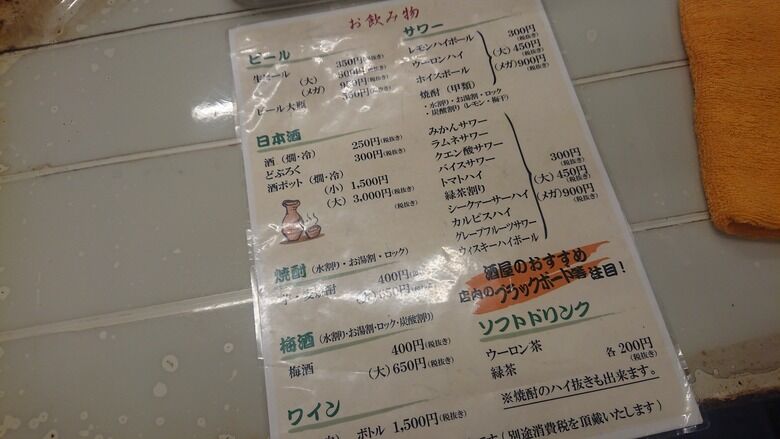 お飲み物
ビール
生ビール 350円(税抜き)
(大) 500円(税抜き)
(メガ) 950円(税抜き)
ビール大瓶 550円(税抜き)
日本酒
酒(燗・冷) 250円(税抜き)
どぶろく 300円(税抜き)
酒ポット(燗・冷)
(小) 1,500円(税抜き)
(大) 3,000円(税抜き)
焼酎(水割り・お湯割・ロック)
400円(税抜き)
梅酒(水割り・お湯割・ロック・炭酸割り)
梅酒 400円(税抜き)
(大) 650円(税抜き)
ワイン
ボトル 1,500円(税抜き)
サワー
レモンハイボール
ウーロンハイ
ホイスボール
焼酎(甲類)
・水割り・お湯割・ロック
・炭酸割り(レモン・梅干)
300円(税抜き)
(大) 450円(税抜き)
(メガ) 900円(税抜き)
みかんサワー
ラムネサワー
クエン酸サワー
バイスサワー
トマトハイ
緑茶割り
シークァーサーハイ
カルピスハイ
グレープフルーツサワー
ウィスキーハイボール
300円(税抜き)
(大) 450円(税抜き)
(メガ) 900円(税抜き)
酒屋のおすすめ
店内のブラックボード等注目!
ソフトドリンク
ウーロン茶
緑茶
各 200円(税抜き)
※焼酎のハイ抜きも出来ます。
です(別途消費税を頂戴いたします)